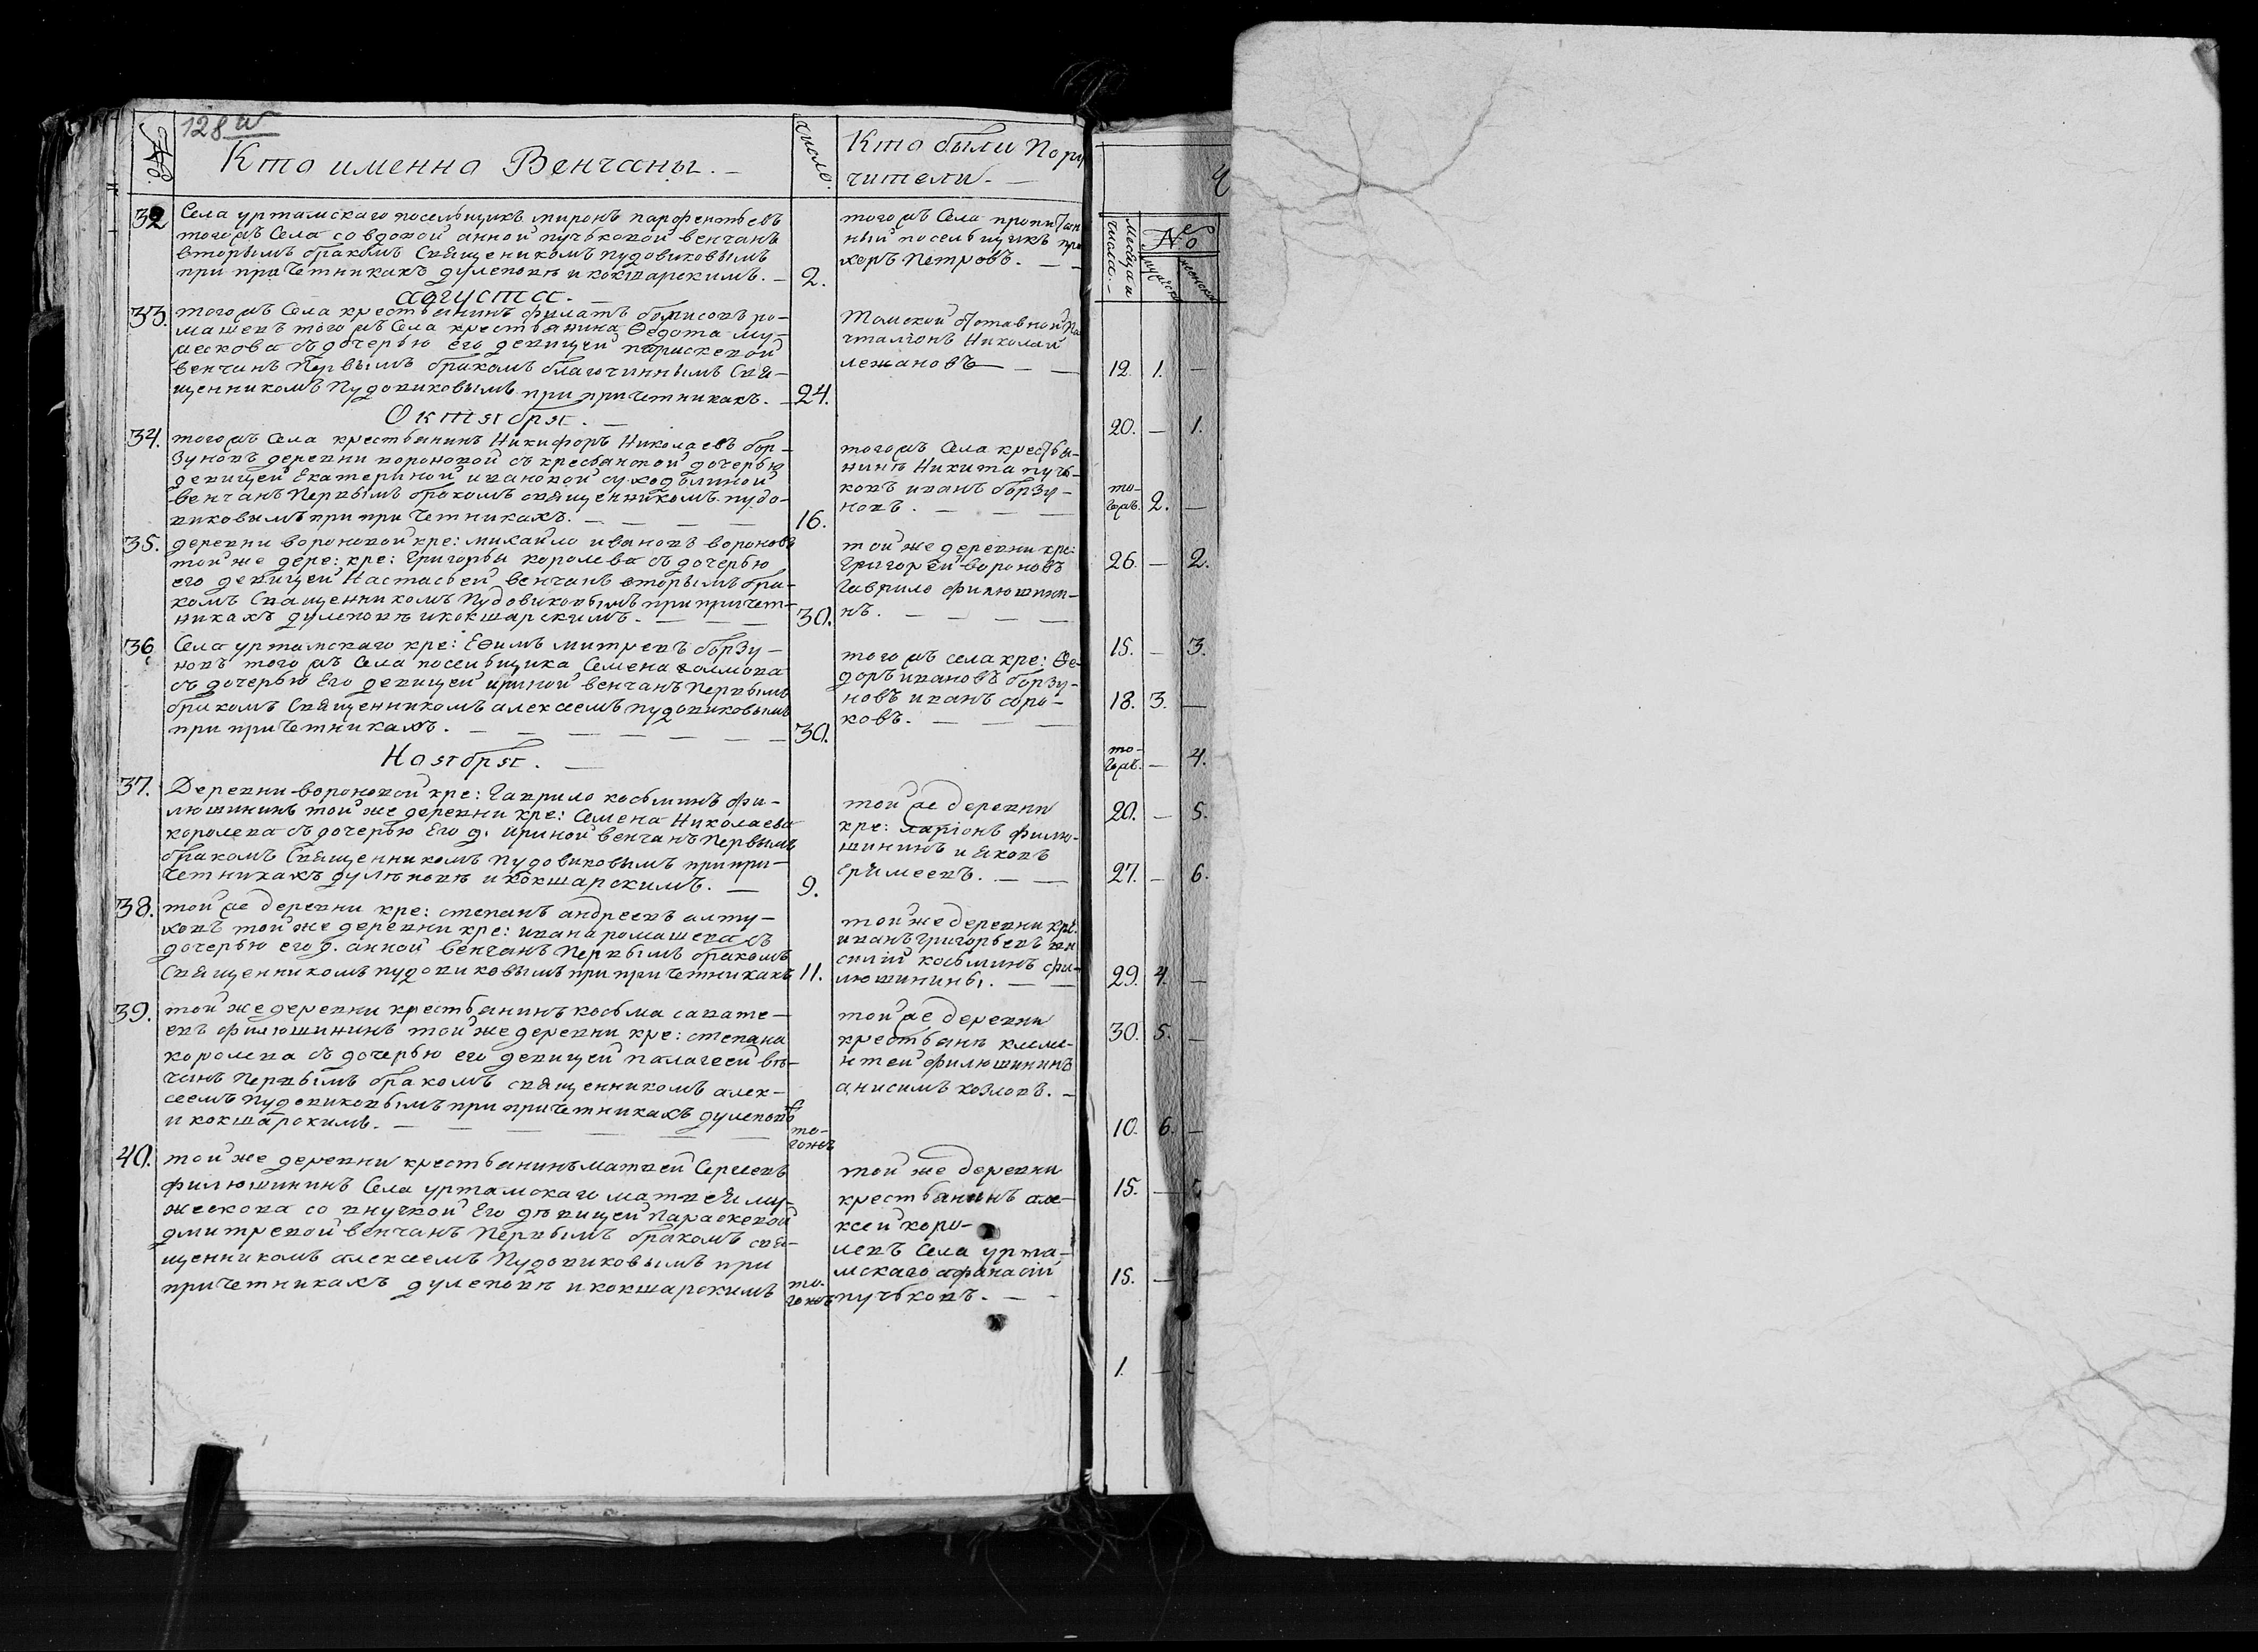 128 об
№.
Кто именно Венчаны. —
число.
Кто были Пору
чители. —
32
Села уртамскаго посельщикъ миронъ парфентьевъ
тогожъ Села со вдовой анной пучьковой венчанъ
вторымъ бракомъ Священикомъ пудовиковымъ
при причетникахъ дулеповѣ и кокшарскимъ. —
2.
тогожъ Села пропитан
ный посельщикъ про
хоръ Петровъ. — —
августа. —
33.
тогожъ Села крестьянинъ филатъ борисовъ ро-
машевъ тогожъ Села крестьянина Ѳедота му-
жескова съ дочерью его девицей параскевой
венчанъ Первымъ бракомъ благочиннымъ Свя-
щенникомъ Пудовиковымъ при причетникахъ. —
24.
Томской отставной По
чталіонъ Николай
лежановъ — —
Октября. —
34.
тогожъ Села крестьянинъ Никифоръ Николаевъ бор-
зуновъ деревни вороновой съ кресьянской дочерью
девицей Екатериной ивановой суходолиной
венчанъ Первымъ бракомъ священникомъ пудо-
виковымъ при причетникахъ. — — — —
16.
тогожъ Села крестья-
нинъ Никита пучь-
ковъ иванъ борзу-
новъ. — — —
35.
деревни вороновой кре: михайло ивановъ вороновъ
той же дере: кре: Григорьи королева съ дочерью
его девицей Настасьей венчанъ вторымъ бра-
комъ Священникомъ Пудовиковымъ при причет-
никахъ дулеповѣ и кокшарскимъ. — — —
30.
той же деревни кре:
Григорей вороновъ
Гаврило филюшини-
нъ. — — — —
36
Села уртамскаго кре: Еѳимъ митревъ борзу-
новъ тогожъ Села посельщика Семена
съ дочерью Его девицей ириной венчанъ Первымъ
бракомъ Священникомъ алексеемъ пудовиковымъ
при причетникахъ. — — — — — — —
30.
тогожъ села кре: Ѳе-
доръ ивановъ борзу-
новъ иванъ соро-
ковъ. — — —
Ноября. —
37.
Деревни вороновой кре: Гаврило косьминъ фи-
люшининъ той же деревни кре: Семена Николаева
королева съ дочерью Его д. ириной венчанъ Первымъ
бракомъ Священникомъ пудовиковымъ при при-
четникахъ дулѣповѣ и кокшарскимъ. —
9.
той же деревни
кре: ларіонъ филю-
шининъ и яковъ
Еримеевъ. — —
38.
той же деревни кре: степанъ андреевъ алту-
ховъ той же деревни кре: ивана ромашева съ
дочерью его д. анной венчанъ Первымъ бракомъ
Священникомъ пудовиковымъ при причетникахъ
11.
той же деревни кре:
иванъ Григорьевъ ва
силий косьминъ фи-
люшинины. — —
39.
той же деревни крестьянинъ косьма савате-
евъ филюшининъ той же деревни кре: степана
королева съ дочерью его девицей палагеей вѣ-
чанъ Первымъ бракомъ священникомъ алек-
сеемъ Пудовиковымъ при причетникахъ дулеповѣ
и кокшарскимъ. — — — — — —
то-
гожъ
той же деревни
крестьянъ клеме-
нтей филюшининъ
анисимъ козловъ. —
40.
той же деревни крестьянинъ матвей Сергеевъ
филюшининъ Села уртамскаго матвея му-
жескова со внучкой Его дѣвицей Параскевой
дмитревой венчанъ Первымъ бракомъ свя-
щенникомъ алексеемъ Пудовиковымъ при
причетникахъ дулеповѣ и кокшарскимъ
то-
гожъ
той же деревни
крестьянинъ але-
ксей коро-
левъ Села урта-
мскаго афанасий
пучьковъ. — —
Ч
месеца и
числа. —
№
мужеска
женска
12. 1. —
20. — 1.
то-
гожъ. 2. —
26. — 2.
15. — 3.
18. 3. —
то-
гожъ. — 4.
20. — 5.
27. — 6.
29. 4. —
30. 5. —
10. 6. —
15. —
15. —
1. —